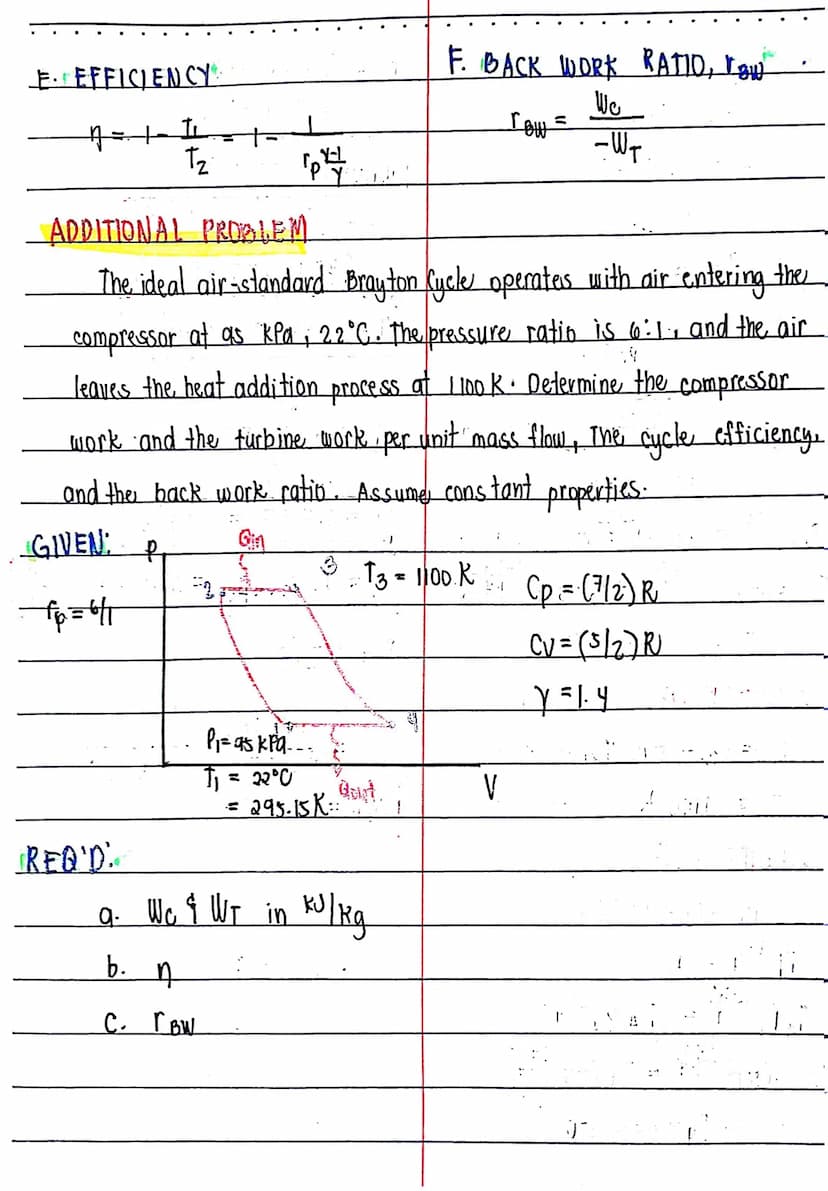 E. EFFICIENCY
F. BACK WORK RATIO, rBW
η = 1 - T1/T2 = 1 - 1/rp^(γ-1/γ)
rBW = Wc/-WT
ADDITIONAL PROBLEM
The ideal air-standard Brayton Cycle operates with air entering the
compressor at 95 kPa, 22°C. The pressure ratio is 6:1, and the air
leaves the heat addition process at 1100 K. Determine the compressor
work and the turbine work per unit mass flow, The cycle efficiency,
and the back work ratio. Assume constant properties.
GIVEN:
P
Qin
rp = 6/1
2
3
T3 = 1100 K
Cp = (7/2) R
Cv = (5/2) R
γ = 1.4
1
4
P1 = 95 kPa
T1 = 22°C
= 295.15 K
Qout
V
REQ'D:
a. Wc & WT in kJ/kg
b. η
c. rBW